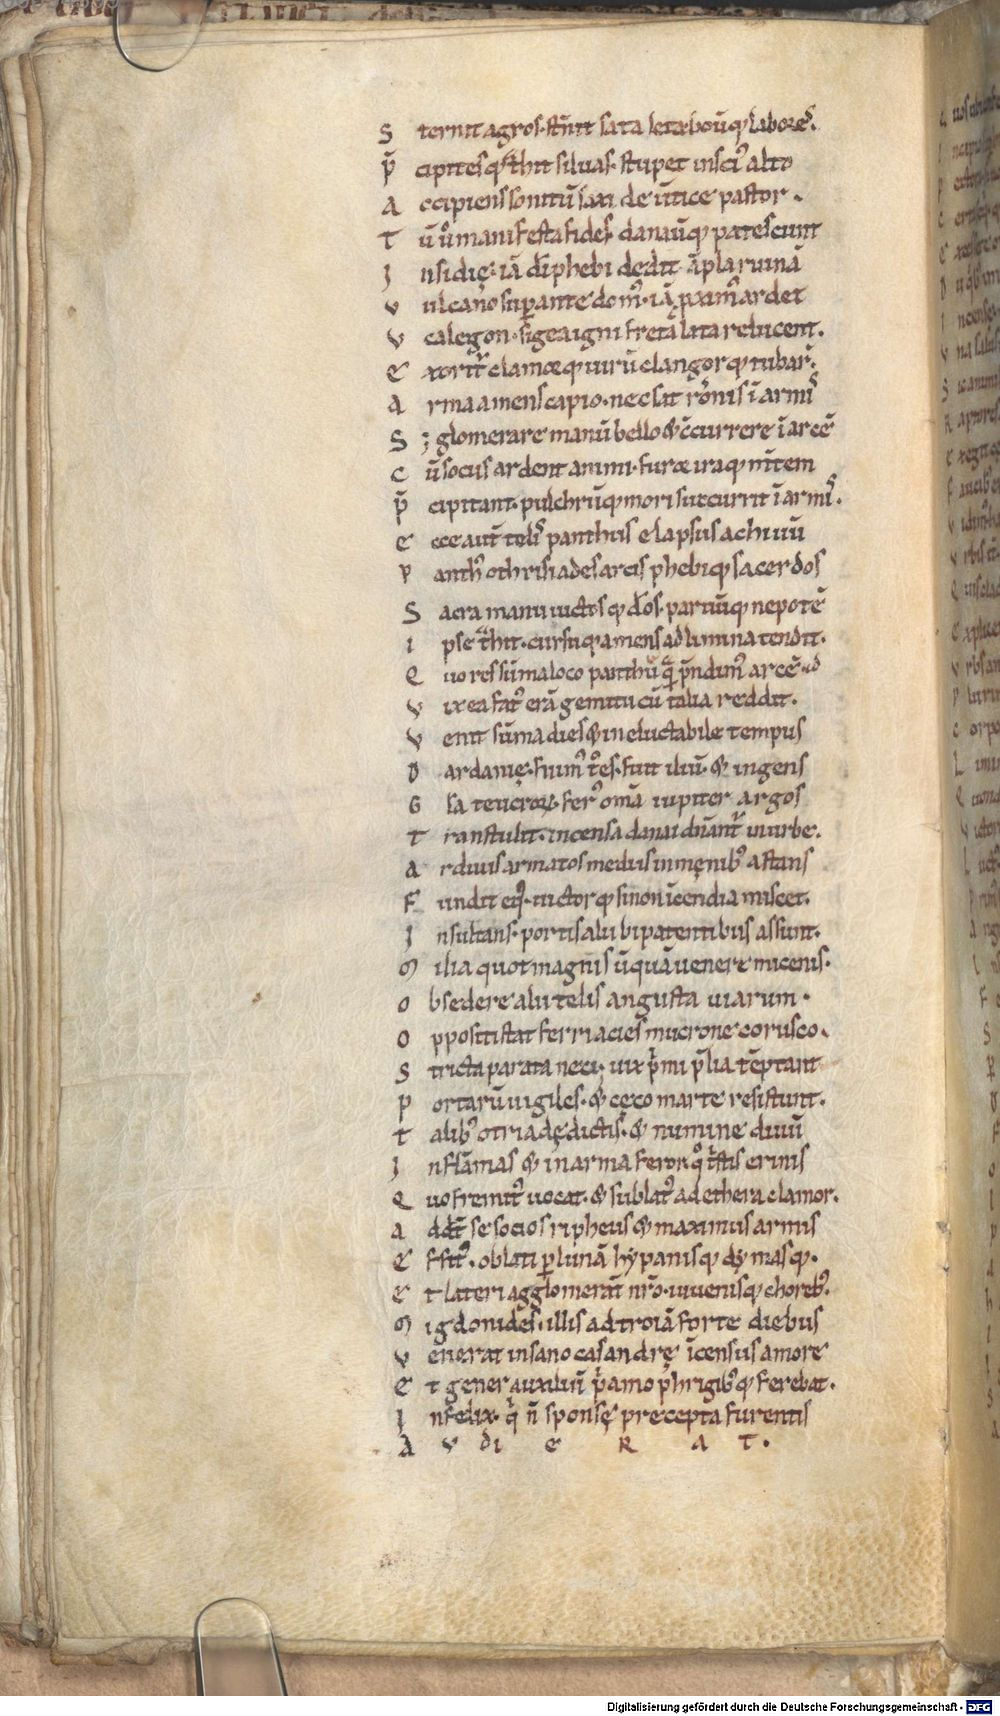 S ternit agros. st̄nit sata leta boūq; laborēs.
p̄ cipitesq; t̾hit siluas. stupet insci᾽ alto
A ccipiens sonitū saxi de ūtice pastor.
T ū u̾o manifesta fides. danaūq; patescunt
I nsidię. iā dei̾phebi dedit āpla ruinā
V ulcano supante dom᾽. iā pxim᾽ ardet
V calegon. sigea igni freta lata relucent.
E xorit᾽ clamorq; uirū clangorq; tubar̄.
A rma amens capio. nec sat ronis ī armis
S ; glomerare manū bello & c̄currere ī arcē
C ū socus ardent animi. furor iraq; m̄tem
p̄ cipitant. pulchrūq; mori succurrit ī armis.
E cce aut̄ telis panthus elapsus achiuū
P anth᾽ othrisiades arcis phebiq; sacerdos
S acra manu uictosq; deos. paruūq; nepotē
I pse t̾hit. cursuq; amens ad lumina tendit.
Q uo res sūma loco panthu. quā p̄ndim᾽ arcē
V ix ea fat᾽ erā gemitu cū talia reddit.
V enit sūma dies & ineluctabile tempus
D ardanię. fuim᾽ troes. fuit iliū. & ingens
G la teucrorū. fer᾽ omā iupiter argos
T ranstulit. incensa danai dn̄ant᾽ in urbe.
A rduus armatos mediis in męnib᾽ astans
F undit eq᾽. uictorq; sinon īcendia miscet.
I nsultans. portis alii bipatentibus assunt.
M ilia quot magnis ūquā uenere micenis.
O bsedere alii telis angusta uiarum.
O ppositi stat ferri acies mucrone corusco.
S tricta parata neci. uix p̾mi p̄lia tēptant
P ortarū uigiles. & cęco marte resistunt.
T alib᾽ otriadę dictis. & numine diuū
I n flāmas & in arma feror. q᾽ t̾stis erinis
Q uo fremit᾽ uocat. & sublat᾽ ad ethera clamor.
A ddt̄ se socios ripheus & maximus armis
E ffit᾽. oblati p lunā hypanisq; dymasq;.
E t lateri agglomerāt n̄ro. iuuenisq; choreb᾽.
M igdonides. illis ad troiā forte diebus
V enerat insano casandrę īcensus amore
E t gener auxiliū p̾amo phrigib᾽q; ferebat.
I nfelix. q̾ n̄ sponsę precepta furentis
A V DI E R A T.
Digitalisierung gefördert durch die Deutsche Forschungsgemeinschaft - DFG